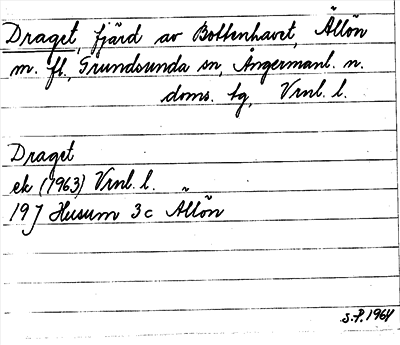 Draget, fjärd av Bottenhavet, Ällön
m. fl., Grundsunda sn, Ångermanl. n.
doms. tg, Vrnl. l.
Draget
ek (1963) Vrnl. l.
19 J Husum 3 c Ällön
S.P. 1964